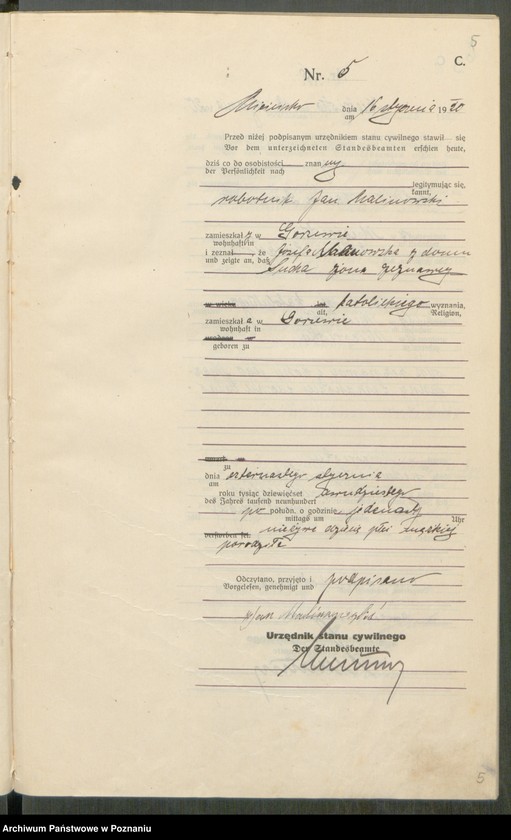 5
C.
Nr. 5
dnia 16 stycznia 1920
am
Przed niżej podpisanym urzędnikiem stanu cywilnego stawił się
Vor dem unterzeichneten Standesbeamten erschien heute,
dziś co do osobistości znany
der Persönlichkeit nach
legitymując się,
kannt,
robotnik Jan Malinowski
zamieszkał y w Gorzewie
wohnhaft in
i zeznał, że Józefa Malinowska z domu
und zeigte an, daß
Sucha żona zeznawcy
w wieku lat katolickiego wyznania,
alt, Religion,
zamieszkał a w Gorzewie
wohnhaft in
geboren zu
zu
dnia czternastego stycznia
am
roku tysiąc dziewięćset dwudziestego
des Jahres tausend neunhundert
po połudn. o godzinie jedenastej
mittags um Uhr
nieżywe dziecię płci męskiej
verstorben sei.
porodziła
Odczytano, przyjęto i podpisano
Vorgelesen, genehmigt und
Jan
Urzędnik stanu cywilnego
Der Standesbeamte
5
Archiwum Państwowe w Poznaniu